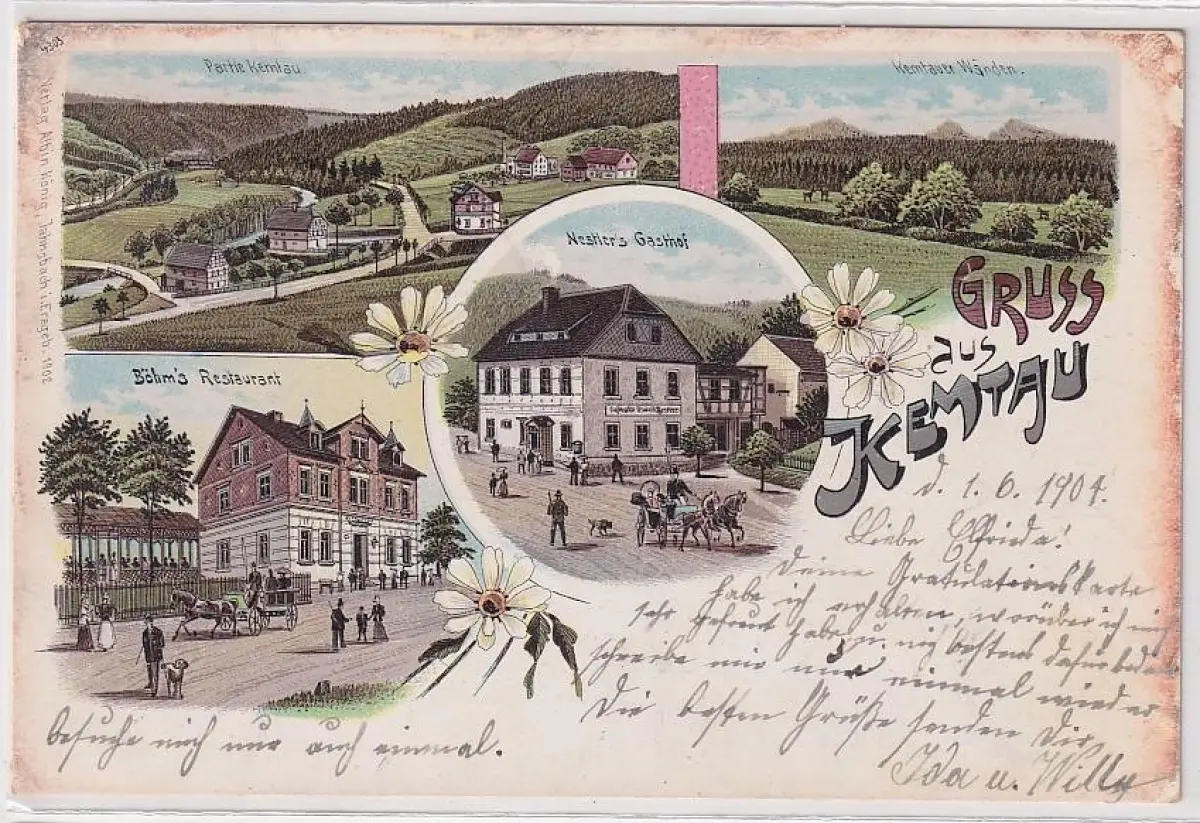 4303
Partie Kemtau
Kemtauer Wänden.
Verlag Albin König, Jahnsbach i. Erzgeb. 1902
Nestler's Gasthof
Böhm's Restaurant
GRUSS
aus
KEMTAU
d. 1. 6. 1904.
Liebe Elfrieda!
Deine Gratulationskarte
habe ich erhalten, worüber ich mich
sehr gefreut habe u. mich bestens dafür bedan
schreibe mir nur einmal wieder
Die besten Grüße senden Dir
Ida u. Willy
besuche mich nur auch einmal.